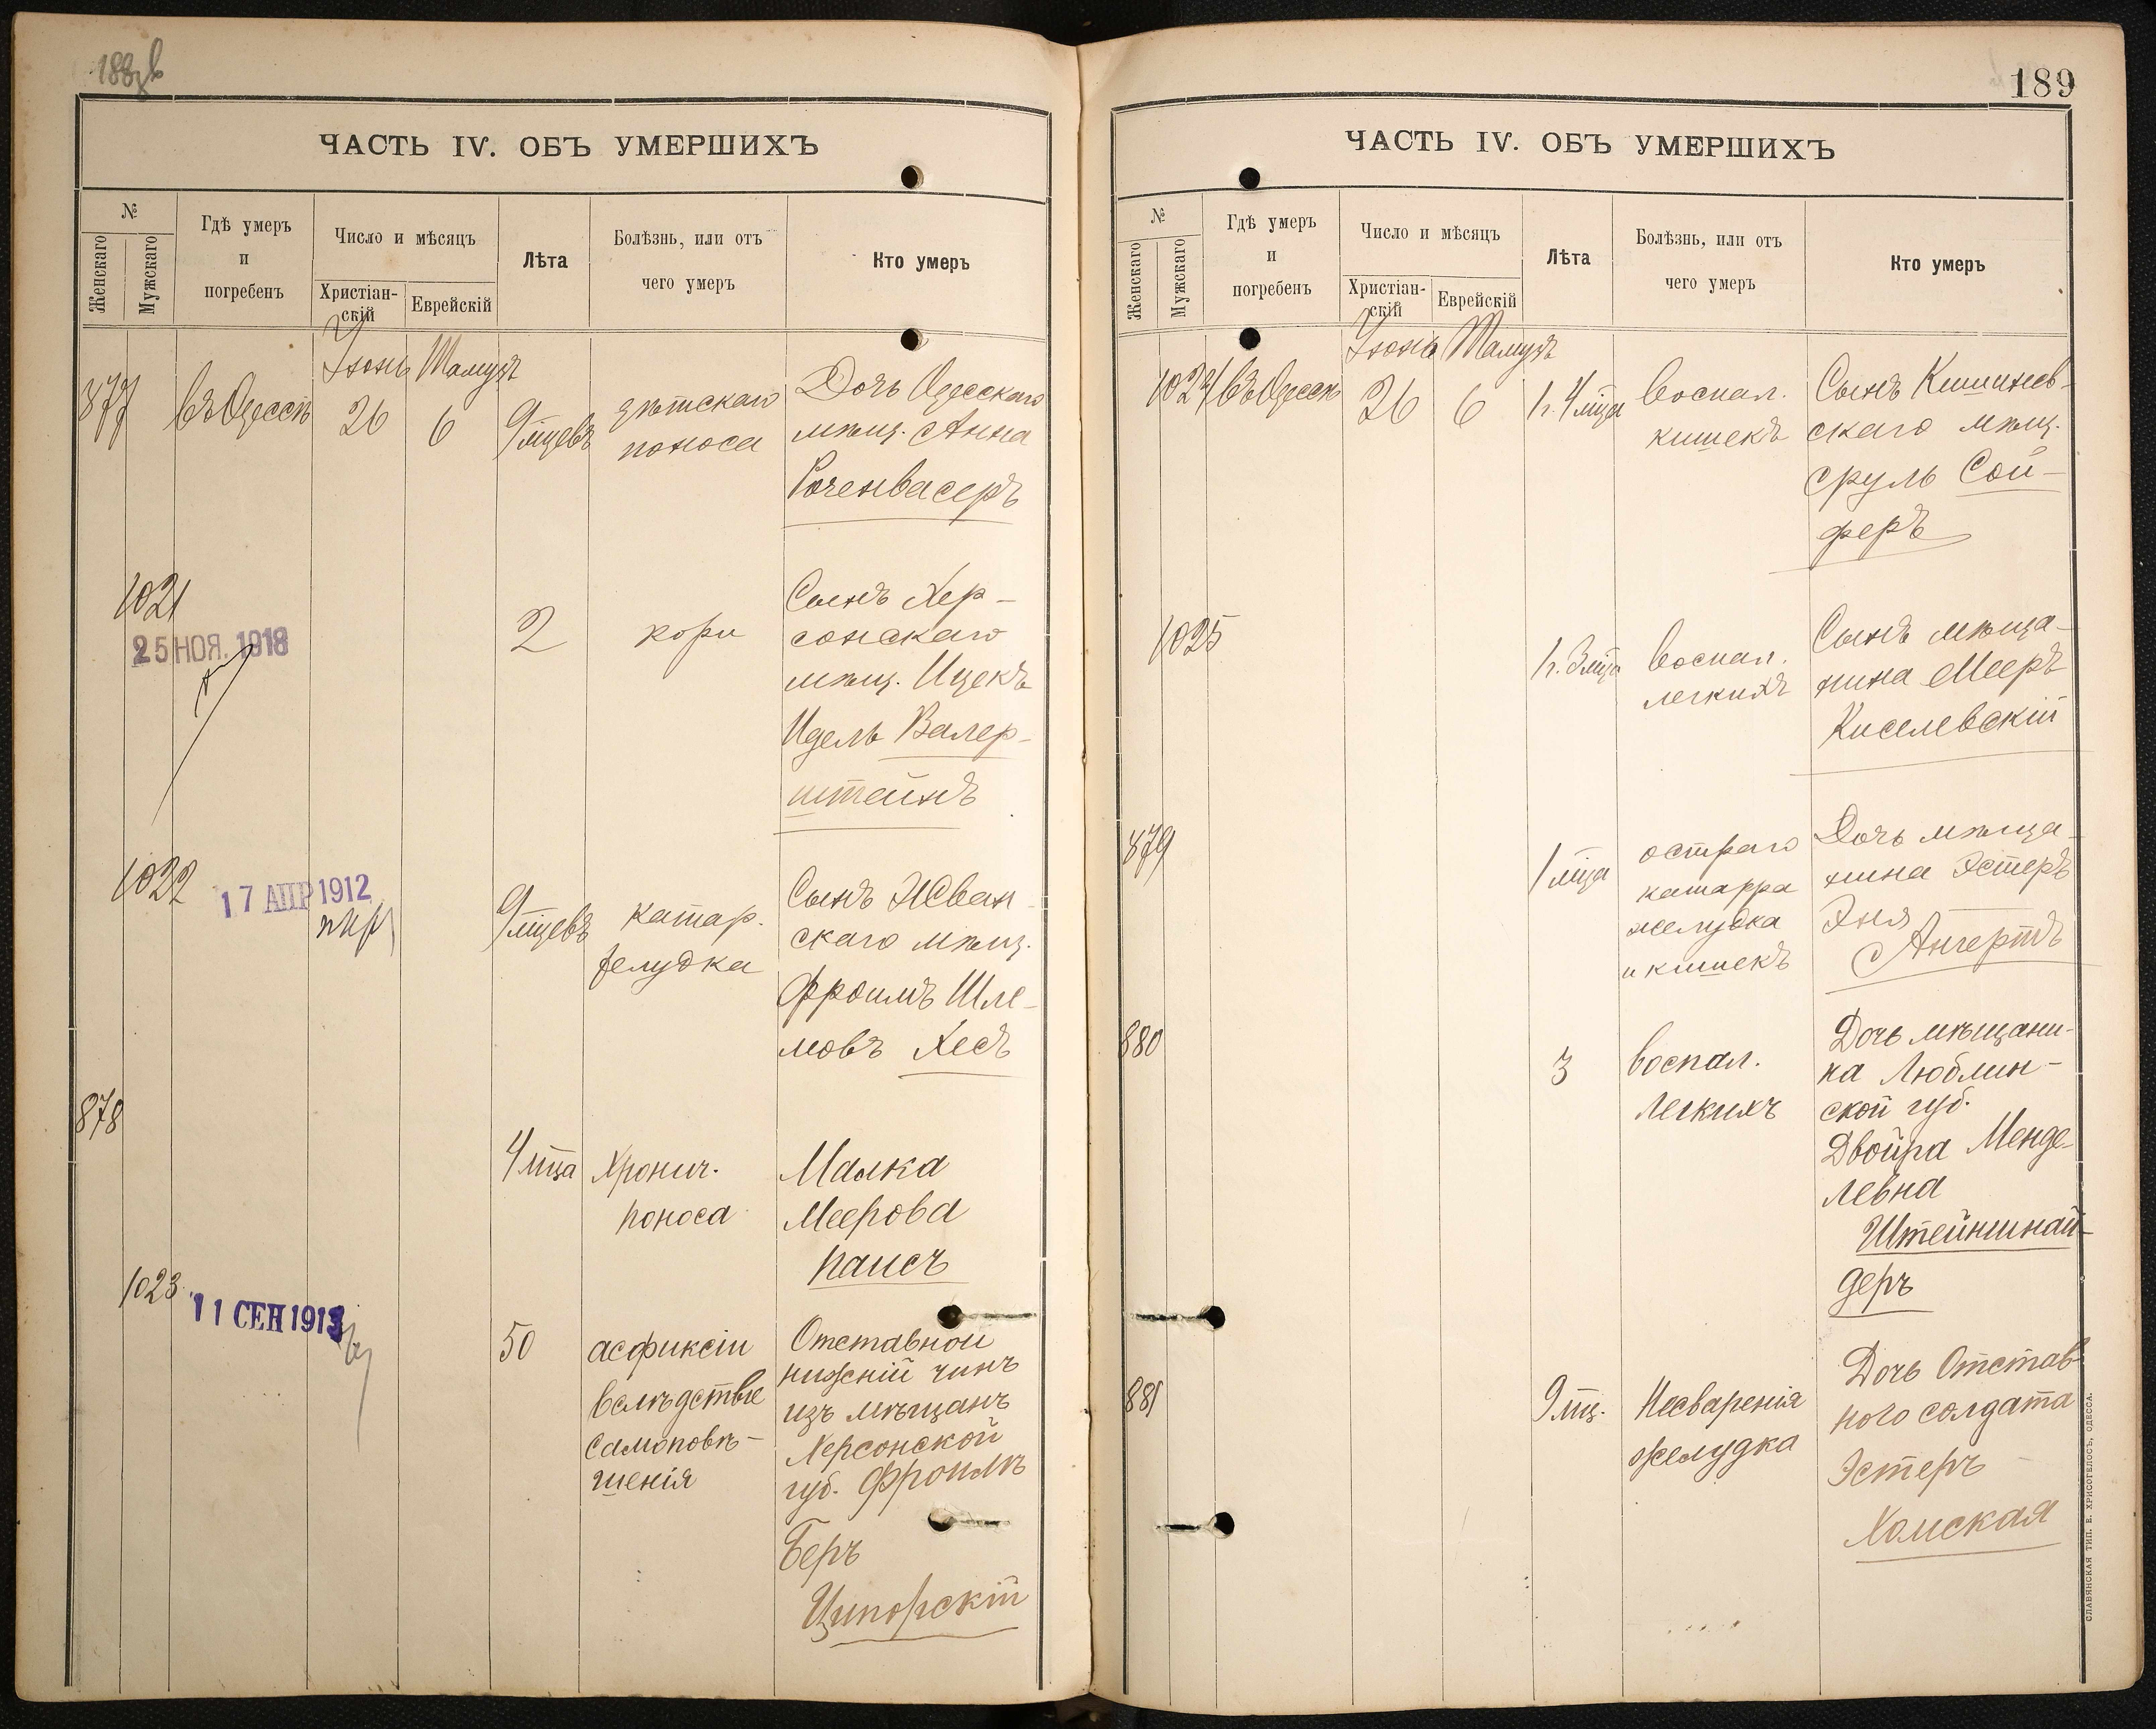 188 в
ЧАСТЬ IV. ОБЪ УМЕРШИХЪ
№
Женскаго
Мужскаго
Гдѣ умеръ
и
погребенъ
Число и мѣсяцъ
Христіан-
скій
Еврейскій
Лѣта
Болѣзнь, или отъ
чего умеръ
Кто умеръ
Іюнь Тамузъ
877 въ Одессѣ 26 6 9 мцевъ
дѣтскаго
поноса
Дочь Одесскаго
мѣщ. Анна
Роченвасеръ
1021
25 НОЯ. 1918
2
кори
Сынъ Хер-
сонскаго
мѣщ. Ицекъ
Идель Валер-
штейнъ
1022
17 АПР 1912
9 мцевъ
катар.
желудка
Сынъ Жван-
скаго мѣщ.
Фроимъ Шле-
мовъ Хесъ
878
4 мца
Хронич.
поноса
Малка
Меерова
Паисъ
1023
11 СЕН 1913
50
асфиксіи
вслѣдствіе
самоповѣ-
шенія
Отставной
нижній чинъ
изъ мѣщанъ
Херсонской
губ. Фроимъ
Беръ
Ципорскій
189
ЧАСТЬ IV. ОБЪ УМЕРШИХЪ
№
Женскаго
Мужскаго
Гдѣ умеръ
и
погребенъ
Число и мѣсяцъ
Христіан-
скій
Еврейскій
Лѣта
Болѣзнь, или отъ
чего умеръ
Кто умеръ
Іюнь Тамузъ
1024 въ Одессѣ 26 6 1 г. 4 мца
воспал.
кишекъ
Сынъ Кишинев-
скаго мѣщ.
Сруль Сой-
феръ
1025
1 г. 3 мца
воспал.
легкихъ
Сынъ мѣща-
нина Мееръ
Киселевскій
879
1 мца
остраго
катарра
желудка
и кишекъ
Дочь мѣща-
нина Эстеръ
Эня
Ангертъ
880
3
воспал.
легкихъ
Дочь мѣщани-
на Люблин-
ской губ.
Двойра Менде-
левна
Штейншнай-
деръ
881
9 мц.
Несваренія
желудка
Дочь Отстав-
ного солдата
Эстеръ
Хомская
СЛАВЯНСКАЯ ТИП. Е. ХРИСОГЕЛОСЪ, ОДЕССА.